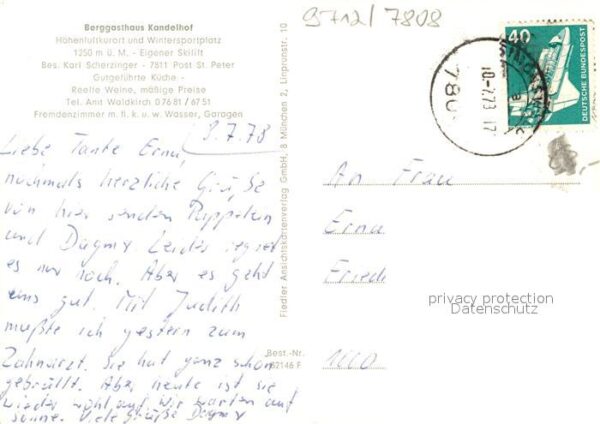 Berggasthaus Kandelhof
Höhenluftkurort und Wintersportplatz
1250 m ü. M. - Eigener Skilift
Bes. Karl Scherzinger - 7811 Post St. Peter
Gutgeführte Küche -
Reelle Weine, mäßige Preise
Tel. Amt Waldkirch 0 76 81 / 67 51
Fremdenzimmer m. fl. k. u. w. Wasser, Garagen
8.7.78
Liebe Tante Erna,
nochmals herzliche Grüße
von hier senden
und Dagmar. Leider regnet
es nur noch. Aber es geht
uns gut. Mit Judith
mußte ich gestern zum
Zahnarzt. Sie hat ganz schön
gebrüllt. Aber heute ist sie
wieder wohlauf. Wir warten auf
Sonne. Viele Grüße Dagmar
Fiedler Ansichtskartenverlag GmbH, 8 München 2, Linprunstr. 10
Best.-Nr.
62146 F
9712/7808
40
DEUTSCHE BUNDESPOST
780
An Frau
Erna
Friedr
privacy protection
Datenschutz
1000